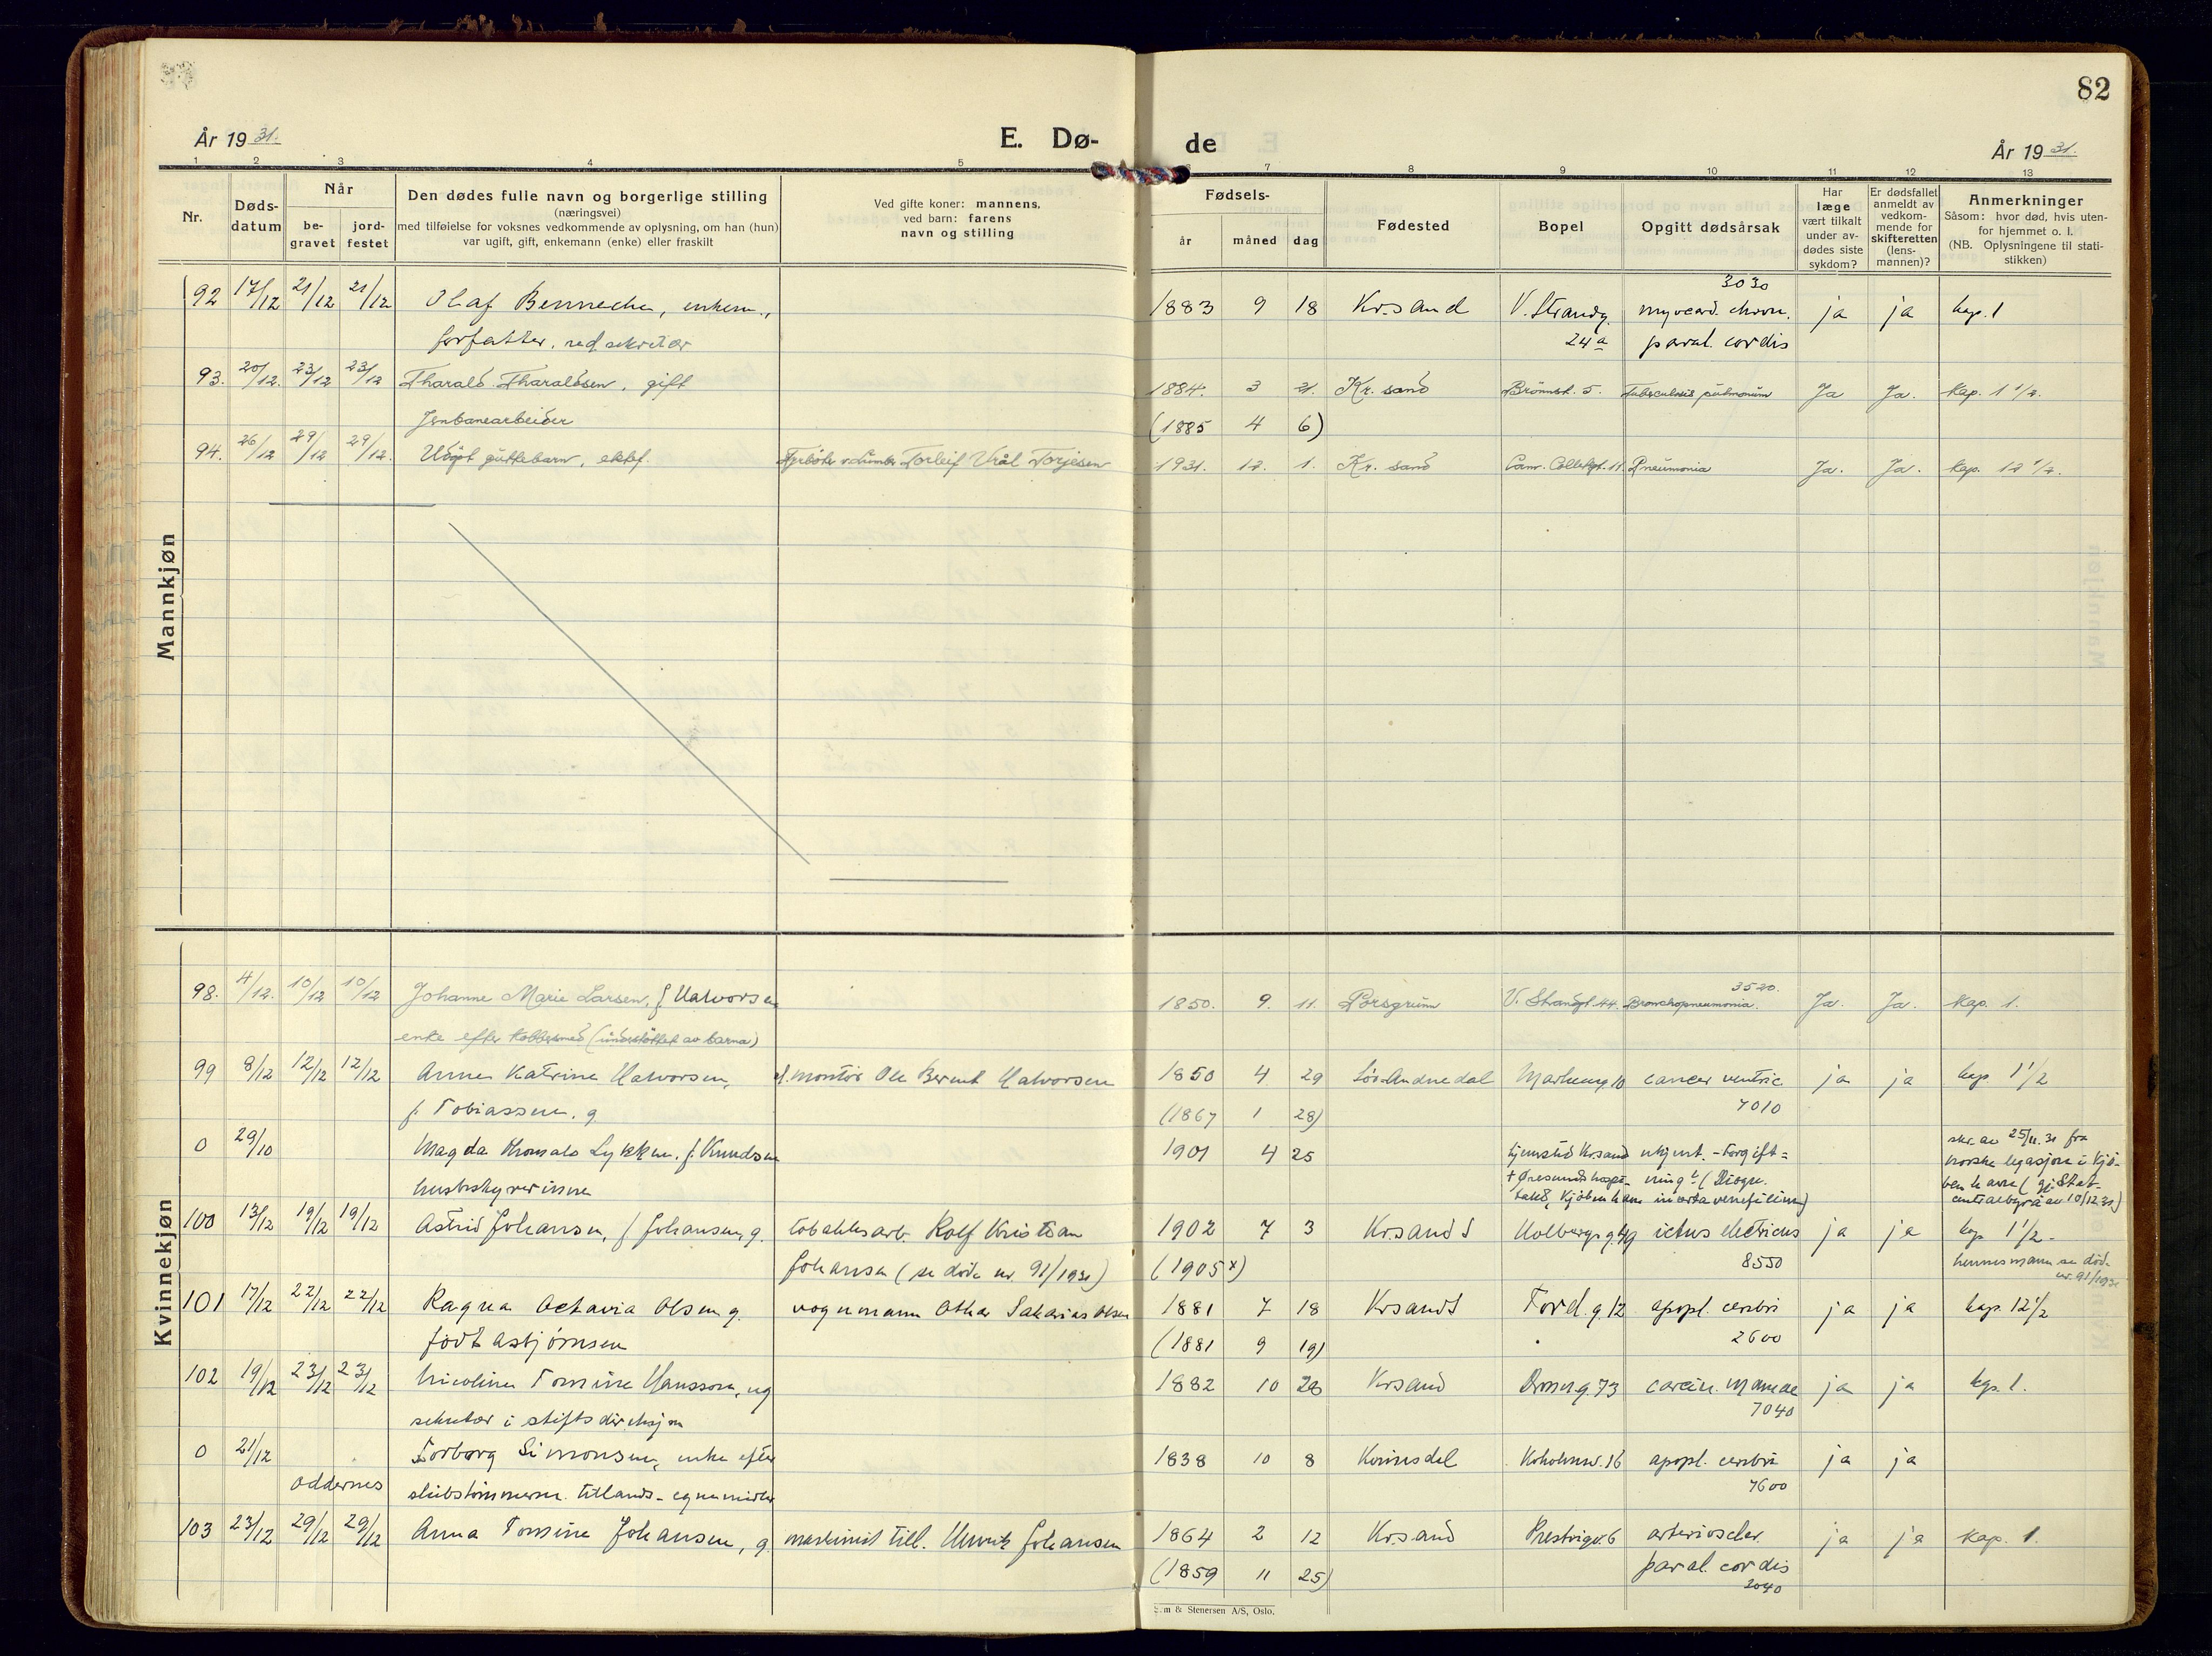 82
År 1931.
E. Dø-
de
År 1931.
1 2 3 4 5 7 8 9 10 11 12 13
Nr.
Døds-
datum
Når
be-
gravet
jord-
festet
Den dødes fulle navn og borgerlige stilling
(næringsvei)
med tilføielse for voksnes vedkommende av oplysning, om han (hun)
var ugift, gift, enkemann (enke) eller fraskilt
Ved gifte koner: mannens,
ved barn: farens
navn og stilling
Fødsels-
år måned dag
Fødested
Bopel
Opgitt dødsårsak
Har
læge
vært tilkalt
under av-
dødes siste
sykdom?
Er dødsfallet
anmeldt av
vedkom-
mende for
skifteretten
(lens-
mannen)?
Anmerkninger
Såsom: hvor død, hvis uten-
for hjemmet o. l.
(NB. Oplysningene til stati-
stikken)
Mannkjøn
3030
92 17/12 21/12 21/12 Olaf Benneche, enkem., 1883 9 18 Kr.sand V. Strandg. myocard. chron. ja ja kap. 1
forfatter, red.sekretær 24a paral. cordis
93. 20/12. 23/12 23/12 Tharald Tharaldsen, gift 1884. 3 21. Kr. sand Brønnst. 5. Tuberculosis pulmonum Ja Ja. Kap. 1 1/2.
Jernbanearbeider (1885 4 6)
94. 26/12 29/12 29/12. Udøpt guttebarn, ektef. Torleif Vrål Torjesen 1931. 12. 1. Kr. sand Cam. Colletgt. 11 Pneumonia Ja. Ja. Kap. 12 1/2.
Kvinnekjøn
3520.
98. 4/12. 10/12 10/12 Johanne Marie Larsen, f Halvorsen 1850. 9. 11. Porsgrunn V. Strandgt. 44. Bronchopneumonia. Ja. Ja. Kap. 1.
enke efter kobbersmed (understøttet av barna)
99 8/12 12/12 12/12 Anne Katrine Halvorsen, montør Ole Bernt Halvorsen 1850 4 29 Løv-Andnedal Markensg 10 cancer ventric ja ja kap. 1 1/2
f. Tobiassen, g. (1867 1 28) 7010
0 29/10 Magda Lykken, f. Knudsen 1901 4 25 hjemsted Krsand ukjent. - Forgift=
husbestyrerinne + Øresundshospi- ning? (Diagn.
tale, Kjøbenhavn incerta veneficium)
skr. av 25/11.31 fra
norske legasjon i Kjø-
benhavn (gj Stat.
centralbyrå av 10/12 31)
100 13/12 19/12 19/12 Astrid Johansen, f Johansen, g. tobakksarb. Rolf Kristian 1902 7 3 Kr.sand S Holbergsg. 49 ictus electricus ja ja kap 1 1/2 -
Johansen (se døde nr. 91/1931) (1905 x) 8550 hennes mann se død.
nr. 91/1931
101 17/12 22/12 22/12 Ragna Octavia Olsen g. vognmann Othar Sakarias Olsen 1881 7 18 KrsandS Tord. g. 12 apopl. cerebri ja ja kap. 12 1/2
født Asbjørnsen (1881 9 19) 2600
102 19/12 23/12 23/12 Nicoline Tomine Hansson, ug 1882 10 28 Krsand Dronn.g. 73 carcin. mamae ja ja kap. 1.
sekretær i stiftsdireksjon 7040
0 21/12 Torborg Simonsen, enke efter 1838 10 8 Kvinesdal Koholmsv. 16 apopl. cerebri ja ja
Oddernes skibstømmerm. egne midler 7600
103 23/12 29/12 29/12 Anna Tomine Johansen, g. maskinist Henrik Johansen 1864 2 12 Kr.sand Prestvigv. 6 arterioscler. ja ja Kap. 1.
(1859 11 25) paral. cordis
2040
& Stenersen A/S, Oslo.